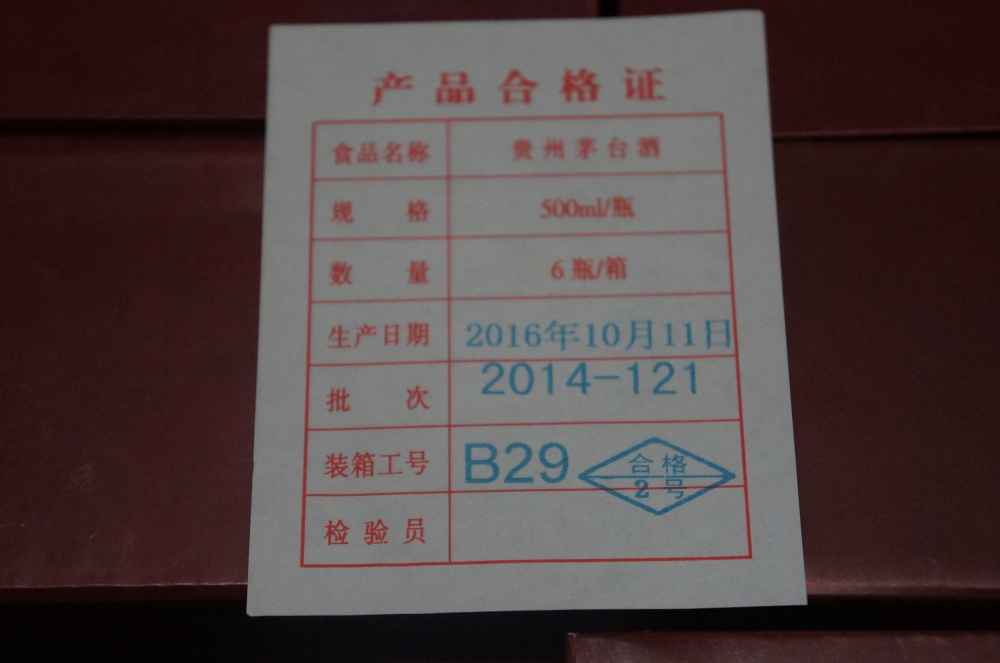 产品合格证
食品名称 贵州茅台酒
规格 500ml/瓶
数量 6瓶/箱
生产日期 2016年10月11日
批次 2014-121
装箱工号 B29
合格
2号
检验员